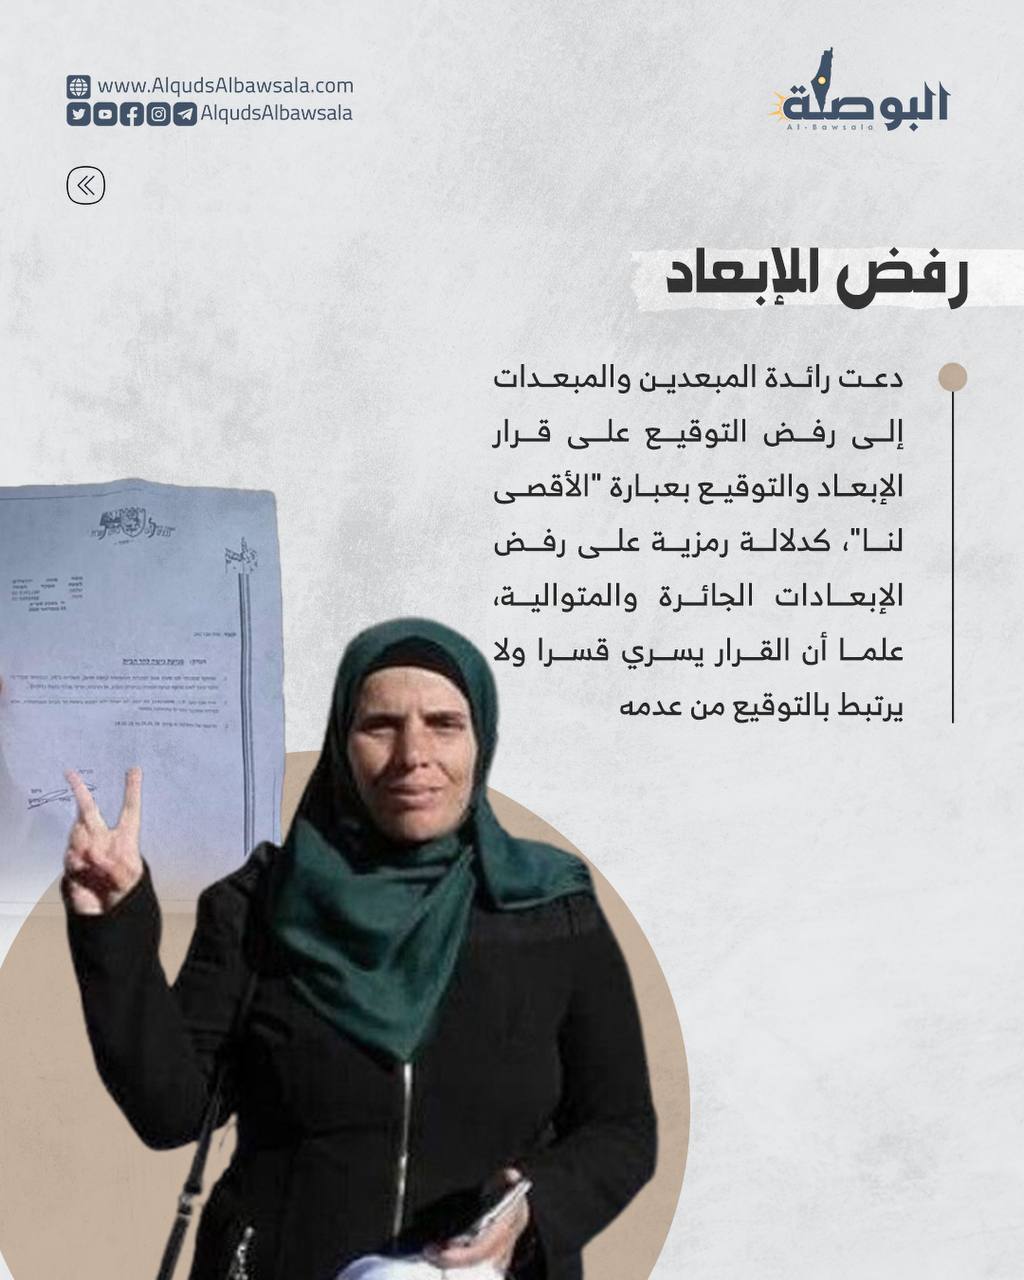 www.AlqudsAlbawsala.com
AlqudsAlbawsala
البوصلة
Al-Bawsala
رفض الإبعاد
دعت رائدة المبعدين والمبعدات
إلى رفض التوقيع على قرار
الإبعاد والتوقيع بعبارة "الأقصى
لنا"، كدلالة رمزية على رفض
الإبعادات الجائرة والمتوالية،
علما أن القرار يسري قسرا ولا
يرتبط بالتوقيع من عدمه